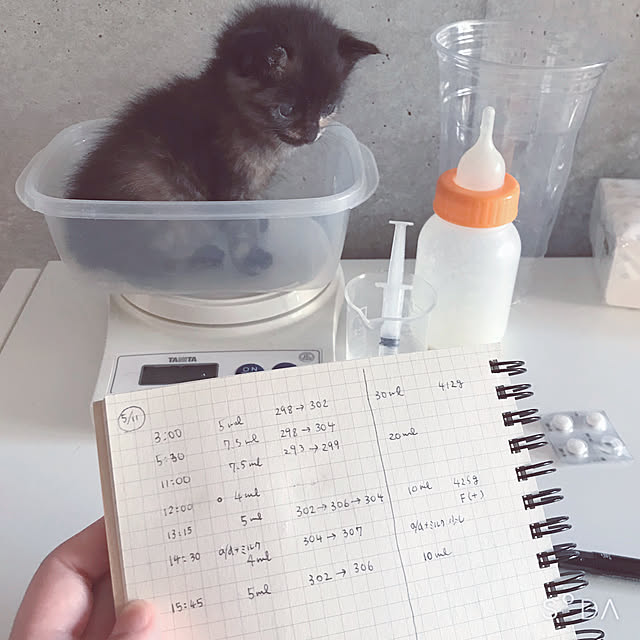 TANITA
ON
5/11
3:00 5ml 298→302 30ml 412g
5:30 7.5ml 298→304 20ml
11:00 7.5ml 293→299
12:00 4ml
13:15 5ml 302→306→304 10ml 425g
F(+)
14:30 a/d+ミルク 4ml 304→307 a/d+ミルク
15:45 5ml 302→306 10ml
SODA